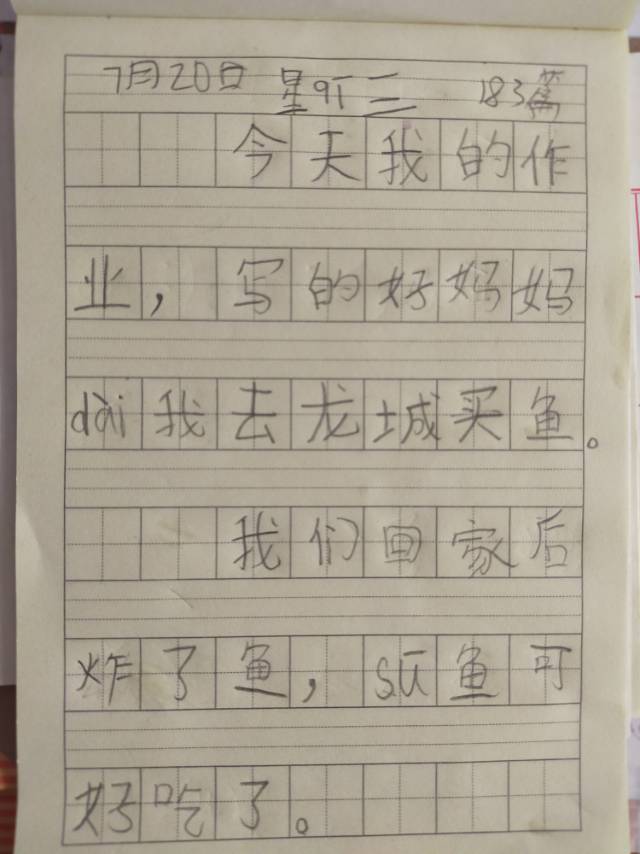 7月20日 星qī三 183篇
今天我的作
业，写的好妈妈
dài我去龙城买鱼。
我们回家后
炸了鱼，sū鱼可
好吃了。